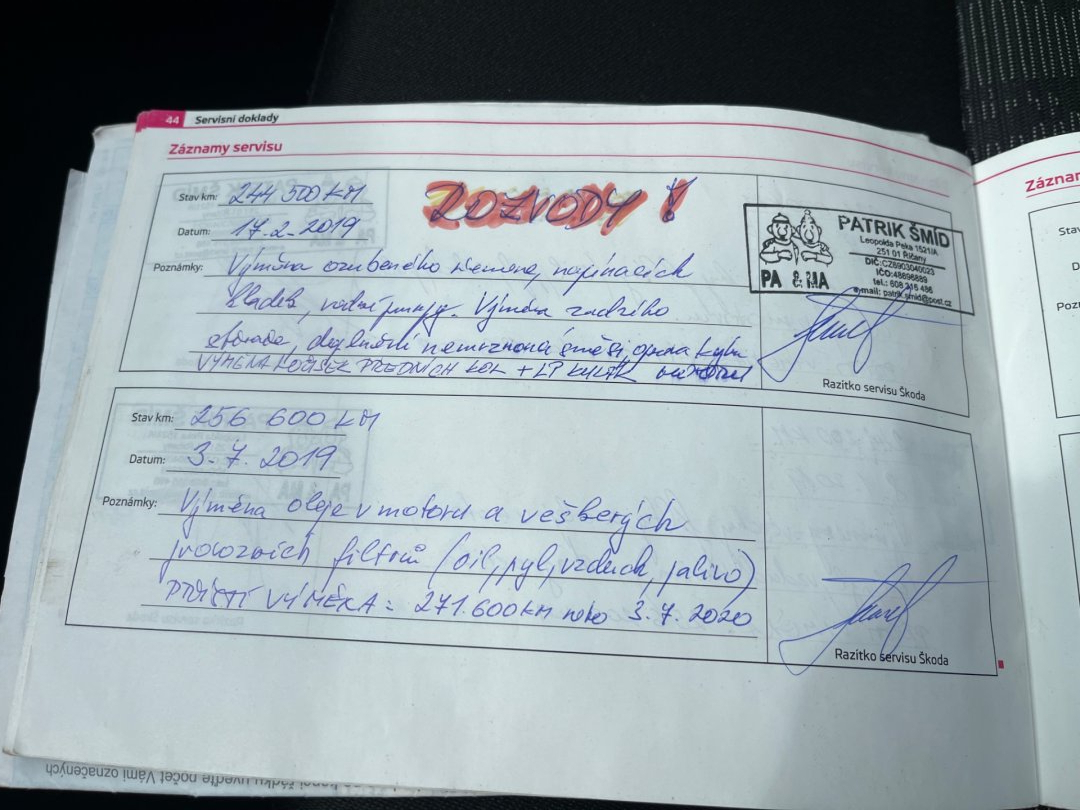 44 Servisní doklady
Záznamy servisu
Stav km: 244 500 KM
ROZVODY!
Datum: 17.2.2019
Poznámky: Výměna ozubeného řemene, napínacích
kladek, vodní pumpy. Výměna zadního
doplnění nemrznoucí směsi, oprava
VÝMĚNA LOŽISEK PŘEDNÍCH KOL + LP
PATRIK ŠMÍD
Leopolda Peka 1521/A
251 01 Říčany
DIČ:CZ8903040023
IČO:48698889
tel.: 608 315 486
e-mail: patrik.smid@post.cz
PA & MA
Razítko servisu Škoda
Stav km: 256 600 KM
Datum: 3.7.2019
Poznámky: Výměna oleje v motoru a veškerých
provozních filtrů (oil, pyl, vzduch, palivo)
PŘÍŠTÍ VÝMĚNA: 271.600 KM nebo 3.7.2020
Razítko servisu Škoda
Záznam
Stav
D
Poz
řádku uveďte počet Vámi označených